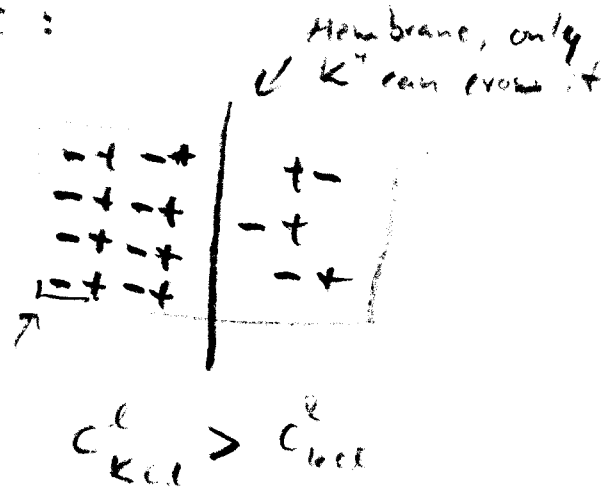 :
Membrane, only
K⁺ can cross it
- + - + + -
- + - + - +
- + - + - +
- + - +
C^l_KCl > C^l_KCl